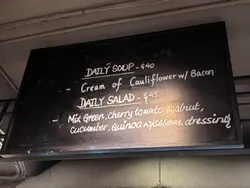 DAILY SOUP - $40
Cream of Cauliflower w/ Bacon
DAILY SALAD - $45
Mix Green, cherry tomato, Walnut,
cucumber, Quinoa w/sesome dressing